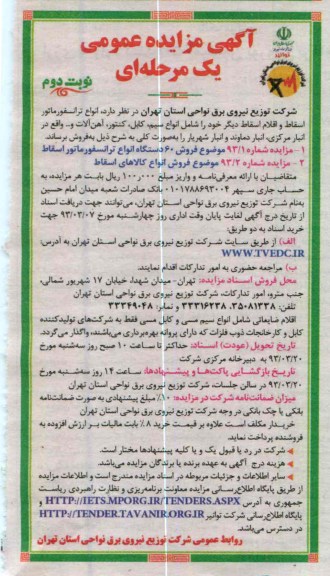 آگهی مزایده عمومی
یک مرحله‌ای
نوبت دوم
شرکت توزیع نیروی برق نواحی استان تهران در نظر دارد، انواع ترانسفورماتور
اسقاط و اقلام اسقاط دیگر خود را شامل انواع سیم، کابل، کنتور، آهن‌آلات و... واقع در
انبار مرکزی، انبار دماوند و انبار شهریار را بصورت کلی به شرح ذیل به‌فروش برساند.
۱ - مزایده شماره ۹۳/۱ موضوع فروش ۶۰ دستگاه انواع ترانسفورماتور اسقاط
۲ - مزایده شماره ۹۳/۲ موضوع فروش انواع کالاهای اسقاط
متقاضیان با ارائه معرفی‌نامه و واریز مبلغ ۱۰۰٫۰۰۰ ریال بابت هر مزایده، به
حساب جاری سپهر ۰۱۰۱۷۸۸۶۹۳۰۰۴ بانک صادرات شعبه میدان امام حسین
به‌نام شرکت توزیع نیروی برق نواحی استان تهران، می‌توانند جهت دریافت اسناد
از تاریخ درج آگهی لغایت پایان وقت اداری روز چهارشنبه مورخ ۹۳/۰۳/۰۷ جهت
خرید اسناد به دو طریق:
الف) از طریق سایت شرکت توزیع نیروی برق نواحی استان تهران به آدرس:
WWW.TVEDC.IR
ب) مراجعه حضوری به امور تدارکات اقدام نمایند.
محل فروش اسناد مزایده: تهران - میدان شهدا، خیابان ۱۷ شهریور شمالی،
جنب مترو، امور تدارکات، شرکت توزیع نیروی برق نواحی استان تهران
تلفن: ۳۵۰۸۱۳۳۸، ۳۳۳۱۶۲۳۸ و نمابر: ۳۳۳۴۹۰۴۸
اقلام ضایعاتی شامل انواع سیم مسی و کابل مسی فقط به شرکت‌های تولیدکننده
کابل و کارخانجات ذوب فلزات که دارای پروانه بهره‌برداری می‌باشند، واگذار می‌گردد.
تاریخ تحویل (عودت) اسناد: حداکثر تا ساعت ۱۰ صبح روز سه‌شنبه مورخ
۹۳/۰۳/۲۰ به دبیرخانه مرکزی شرکت
تاریخ بازگشایی پاکت‌ها و پیشنهادها: ساعت ۱۴ روز سه‌شنبه مورخ
۹۳/۰۳/۲۰ در سالن جلسات، شرکت توزیع نیروی برق نواحی استان تهران
میزان ضمانت‌نامه شرکت در مزایده: ۱۰٪ مبلغ پیشنهادی به صورت ضمانت‌نامه
بانکی یا چک بانکی در وجه شرکت توزیع نیروی برق نواحی استان تهران
خریدار مکلف است علاوه بر قیمت خرید ۸٪ بابت مالیات بر ارزش افزوده به
فروشنده پرداخت نماید.
شرکت در رد یا قبول یک و یا کلیه پیشنهادها مختار است.
هزینه درج آگهی به عهده برنده یا برندگان مزایده می‌باشد.
سایر اطلاعات و جزئیات مربوطه در اسناد مزایده مندرج است و اطلاعات مزایده
از طریق پایگاه اطلاع‌رسانی مزایده معاونت برنامه‌ریزی و نظارت راهبردی ریاست
جمهوری به آدرس HTTP://IETS.MPORG.IR/TENDERS.ASPX و
پایگاه اطلاع‌رسانی شرکت توانیر HTTP://TENDER.TAVANIR.ORG.IR
در دسترس می‌باشد.
روابط عمومی شرکت توزیع نیروی برق نواحی استان تهران